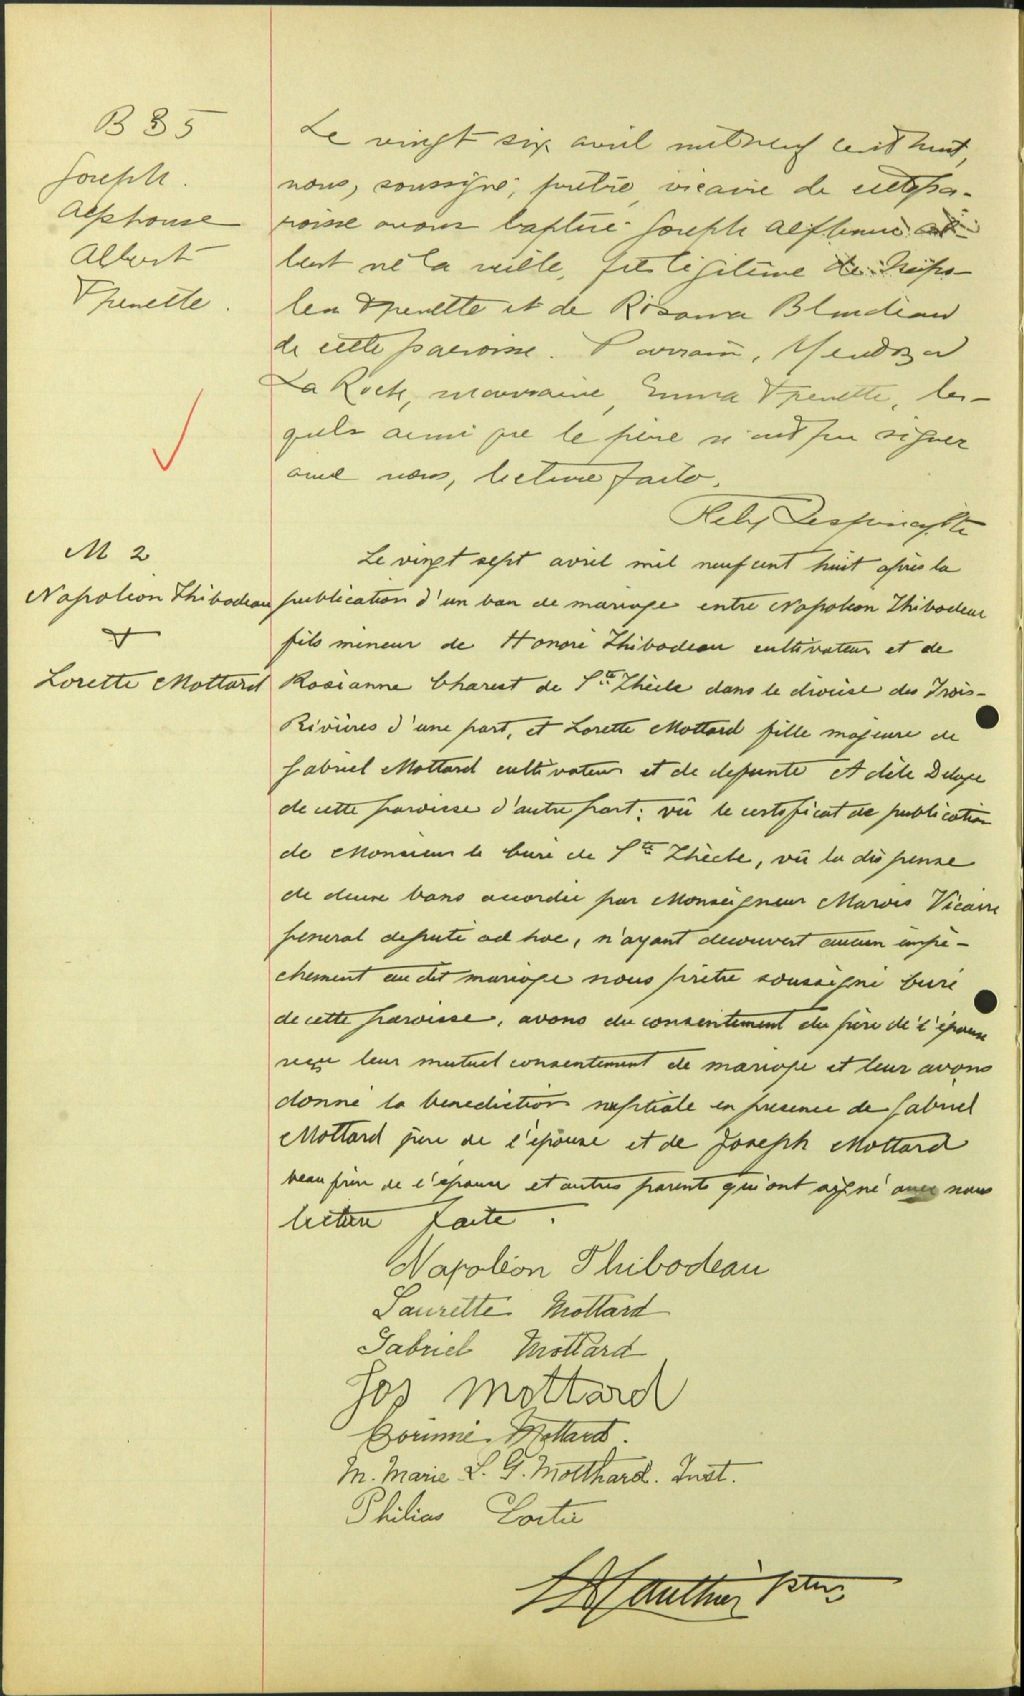 B 35
Joseph
Alphonse
Albert
Frenette.
Le vingt six avril mil neuf cent huit,
nous, soussigné, prêtre, vicaire de cette pa-
roisse avons baptisé Joseph Alphonse Al-
bert né la veille, fils légitime de Napo-
léon Frenette et de Rosanna Blondeau
de cette paroisse. Parrain,
La Roch, marraine, Emma Frenette, les-
quels ainsi que le père n'ont pu signer
avec nous, lecture faite.
Ptre
M 2
Napoléon Thibodeau
&
Lorette Mottard
Le vingt sept avril mil neuf cent huit après la
publication d'un ban de mariage entre Napoléon Thibodeau
fils mineur de Honoré Thibodeau cultivateur et de
Rosianne Charest de Ste Thècle dans le diocèse des Trois-
Rivières d'une part, et Lorette Mottard fille majeure de
Gabriel Mottard cultivateur et de defunte Adèle Delage
de cette paroisse d'autre part; vû le certificat de publication
de Monsieur le Curé de Ste Thècle, vû la dispense
de deux bans accordée par Monseigneur Marois Vicaire
general deputé ad hoc, n'ayant decouvert aucun empê-
chement au dit mariage nous prêtre soussigné Curé
de cette paroisse, avons du consentement du père de l'épouse
reçu leur mutuel consentement de mariage et leur avons
donné la benediction nuptiale en presence de Gabriel
Mottard père de l'épouse et de Joseph Mottard
beau frère de l'épouse et autres parents qui ont signé avec nous
lecture faite.
Napoléon Thibodeau
Laurette Mottard
Gabriel Mottard
Jos Mottard
Corinne Mottard.
M. Marie L. G. Motthard. Inst.
Philias Cortie
Gauthier ptre